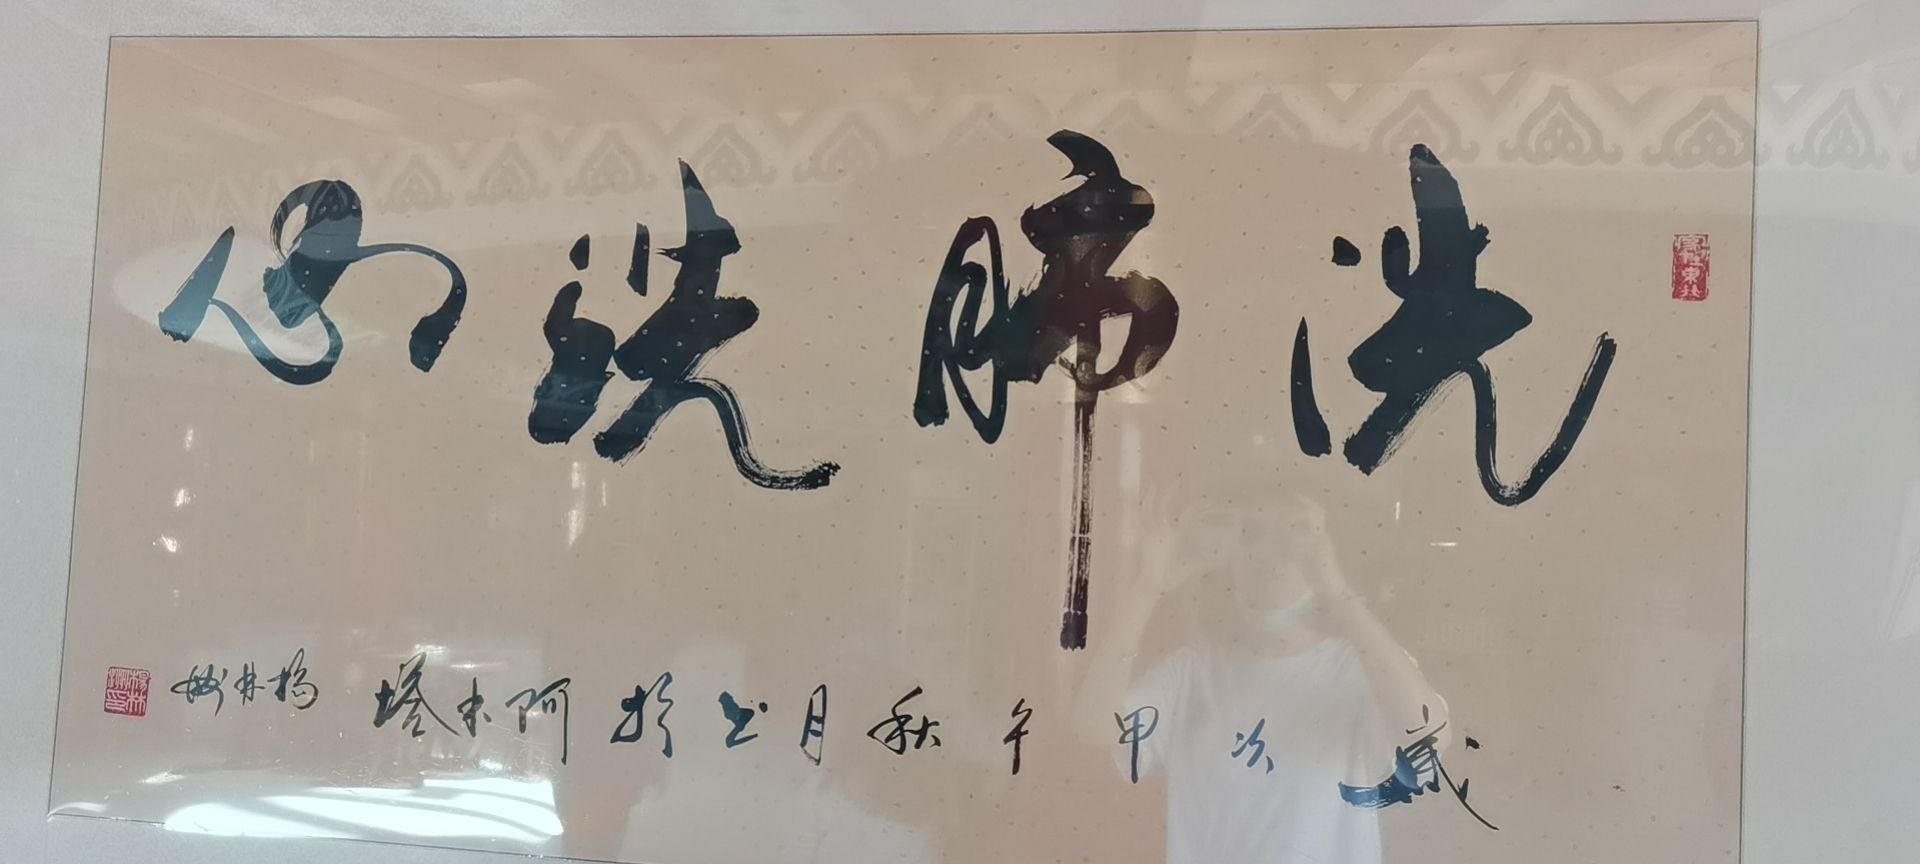 洗肺洗心
歲次甲午秋月书於阿木塔
楊林